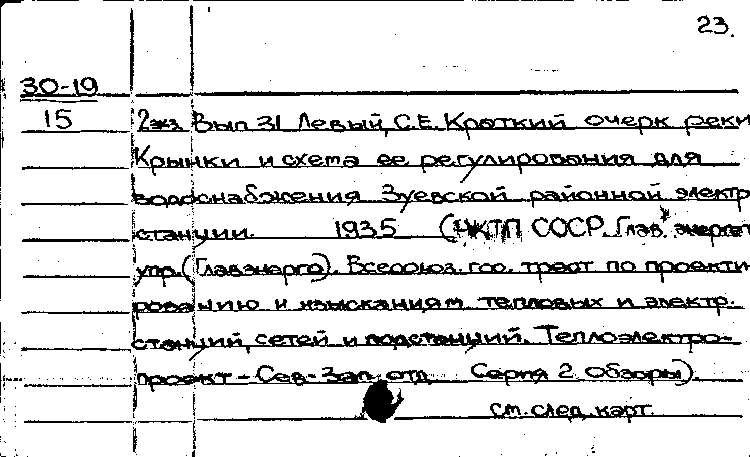 23.
30-19
15 2 экз. Вып 31 Левый, С.Е. Краткий очерк реки
Крынки и схема ее регулирования для
водоснабжения Зуевской районной электр
станции. 1935 (НКТП СССР. Глав. энергет
упр. (Главэнерго). Всесоюз. гос. трест по проекти
рованию и изысканиям тепловых и электр.
станций, сетей и подстанций. Теплоэлектро-
проект - Сев-Зап. отд Серия 2. Обзоры).
см. след. карт.